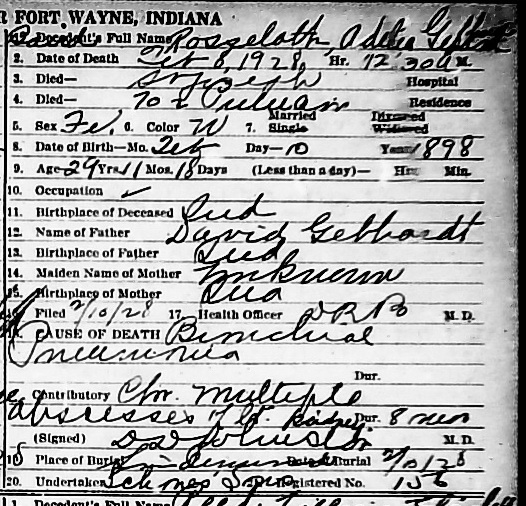 R FORT WAYNE, INDIANA
Decedent's Full Name Adelia
2. Date of Death Feb 1928, Hr. 12 30 M.
3. Died— St Joseph Hospital
4. Died— Residence
5. Sex Fe. 6. Color W 7. Married Single Divorced Widowed
8. Date of Birth—Mo. Feb Day—10 Year 1898
9. Age 29 Yrs 11 Mos. 18 Days (Less than a day)— Hrs. Min.
10. Occupation ✓
11. Birthplace of Deceased Ind
12. Name of Father David Gebhardt
13. Birthplace of Father Ind
14. Maiden Name of Mother Unknown
15. Birthplace of Mother Ind
Filed 2/10/28 17. Health Officer M. D.
CAUSE OF DEATH Bronchial
Pneumonia
Dur.
Contributory Chr. Multiple
abscesses of lt. Kidney Dur. 8 mos
(Signed) M. D.
19. Place of Burial Date of Burial 2/10/28
20. Undertaker Sons Registered No. 156
1. Decedent's Full Name